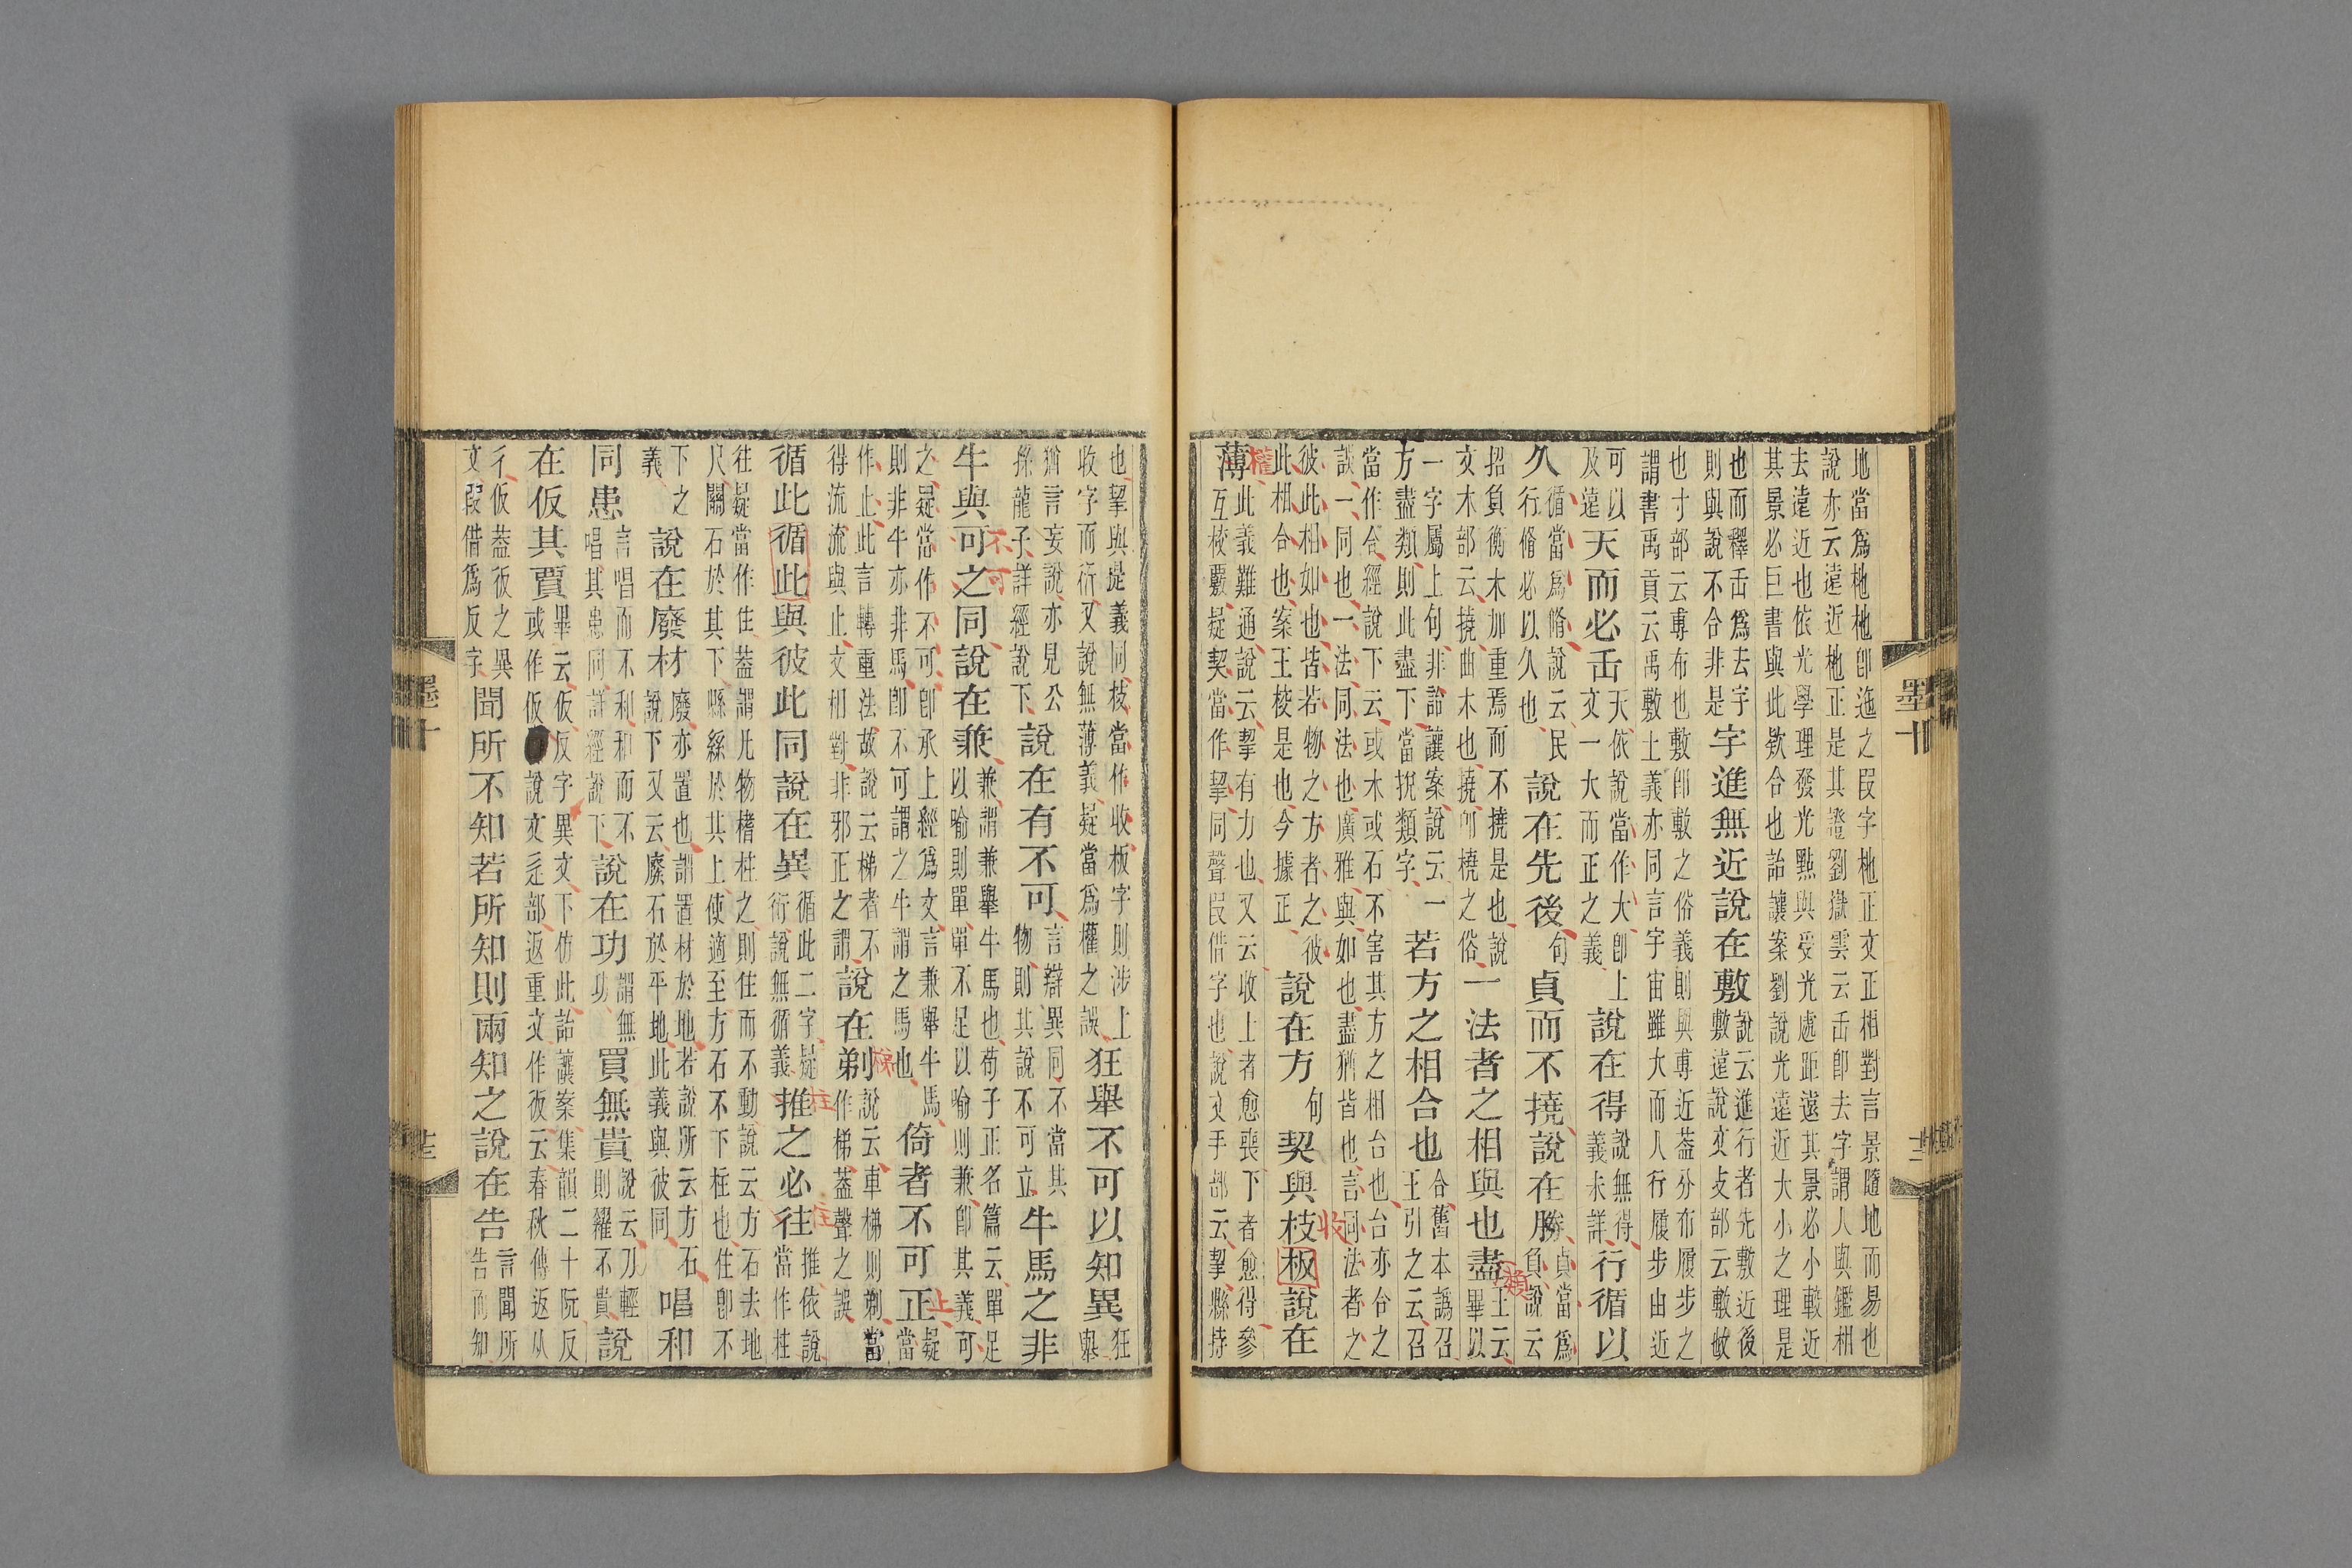 地當爲杝杝卽迤之叚字杝正文正相對言景隨地而易也
說亦云遠近杝正是其證劉嶽雲云臿卽去字謂人與鑑相
去遠近也依光學理發光點與受光處距遠其景必小較近
其景必巨書與此欵合也詒讓案劉說光遠近大小之理是
也而釋臿爲去字
則與說不合非是
字進無近說在敷
說云進行者先敷近後
敷遠說文攴部云敷㪺
也寸部云尃布也敷卽敷之俗義則與尃近葢分布履步之
謂書禹貢云禹敷土義亦同言宇宙雖大而人行履步由近
可以
及遠
天而必臿
天依說當作大卽上
文一大而正之義
說在得
說無得
義未詳
行循以
久
循當爲脩說云民
行脩必以久也
說在先後
句
貞而不撓說在勝
貞當爲
負說云
招負衡木加重焉而不撓是也說
文木部云撓曲木也撓卽橈之俗
一法者之相與也盡
類
王云
畢以
一字屬上句非詒讓案說云一
方盡類則此盡下當挩類字
若方之相合也
合舊本譌召
王引之云召
當作合經說下云或木或石不害其方之相台也台亦合之
談一同也一法同法也廣雅與如也盡猶皆也言同法者之
彼此相如也皆若物之方者之彼
此相合也案王校是也今據正
說在方
句
契與枝板說在
收
薄
權
此義難通說云挈有力也又云收上者愈喪下者愈得參
互校覈疑契當作挈同聲叚借字也說文手部云挈縣持
也挈與提義同枝當作收板字則涉上
收字而衍又說無薄義疑當爲權之誤
狂舉不可以知異
狂
舉
猶言妄說亦見公
孫龍子詳經說下
說在有不可
言辯異同不當其
物則其說不可立
牛馬之非
牛與可之同說在兼
不可
兼謂兼舉牛馬也荀子正名篇云單足
以喻則單單不足以喻則兼卽其義可
之疑當作不可卽承上經爲文言兼舉牛馬
則非牛亦非馬卽不可謂之牛謂之馬也
倚者不可正
止
疑
當
作止此言轉重法故說云梯者不
得流流與止文相對非邪正之謂
說在剃
梯
說云車梯則剃當
作梯葢聲之誤
循此循此與彼此同說在異
循此二字疑
衍說無循義
推之必往
柱
住
推依說
當作柱
往疑當作住葢謂凡物榰柱之則住而不動說云方石去地
尺關石於其下縣絲於其上使適至方石不下柱也住卽不
下之
義
說在廢材
廢亦置也謂置材於地若說所云方石
說下又云廢石於平地此義與彼同
唱和
同患
言唱而不和和而不
唱其患同詳經說下
說在功
謂無
功
買無貴
說云刀輕
則糴不貴
說
在仮其賈
畢云仮反字異文下仿此詒讓案集韻二十阮反
或作仮說文辵部返重文作彶云春秋傳返从
彳仮葢彶之異
文叚借爲反字
聞所不知若所知則兩知之說在告
言聞所
告而知
墨十
十二
墨十